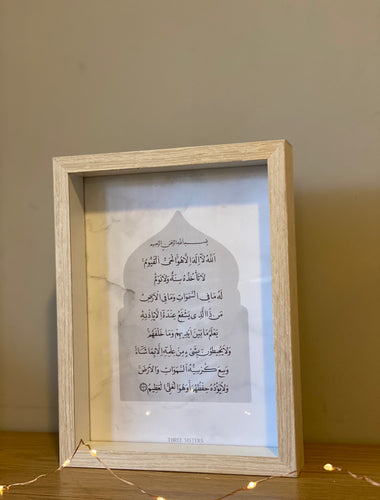 بسم الله الرحمن الرحيم
ٱللَّهُ لَآ إِلَٰهَ إِلَّا هُوَ ٱلْحَىُّ ٱلْقَيُّومُ
لَا تَأْخُذُهُۥ سِنَةٌ وَلَا نَوْمٌ
لَّهُۥ مَا فِى ٱلسَّمَٰوَٰتِ وَمَا فِى ٱلْأَرْضِ
مَن ذَا ٱلَّذِى يَشْفَعُ عِندَهُۥٓ إِلَّا بِإِذْنِهِۦ
يَعْلَمُ مَا بَيْنَ أَيْدِيهِمْ وَمَا خَلْفَهُمْ
وَلَا يُحِيطُونَ بِشَىْءٍ مِّنْ عِلْمِهِۦٓ إِلَّا بِمَا شَآءَ
وَسِعَ كُرْسِيُّهُ ٱلسَّمَٰوَٰتِ وَٱلْأَرْضَ
وَلَا يَـُٔودُهُۥ حِفْظُهُمَا وَهُوَ ٱلْعَلِىُّ ٱلْعَظِيمُ
THREE SISTERS